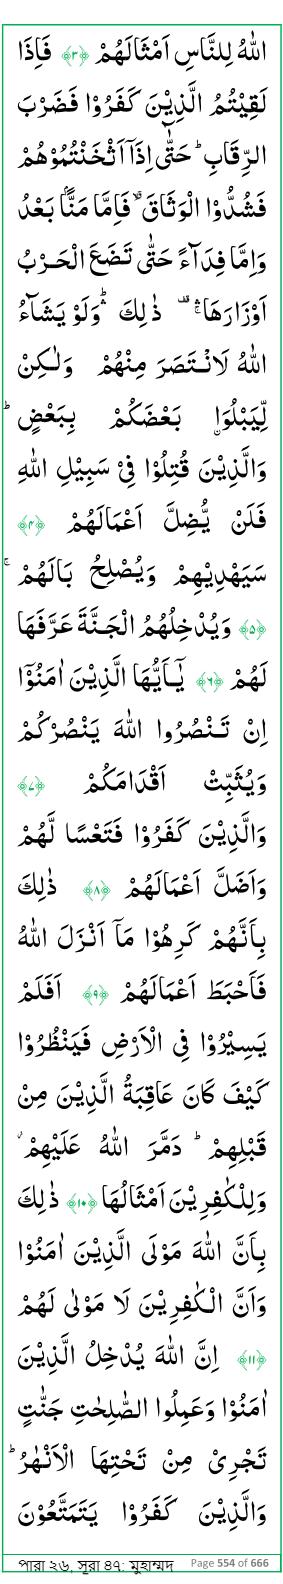 اللّٰهُ لِلنَّاسِ اَمْثَالَهُمْ ﴿۳﴾ فَاِذَا
لَقِيْتُمُ الَّذِيْنَ كَفَرُوْا فَضَرْبَ
الرِّقَابِ ؕ حَتّٰۤى اِذَاۤ اَثْخَنْتُمُوْهُمْ
فَشُدُّوا الْوَثَاقَ ۙ فَاِمَّا مَنًّۢا بَعْدُ
وَاِمَّا فِدَآءً حَتّٰى تَضَعَ الْحَرْبُ
اَوْزَارَهَا ۛ۬ ۚ ذٰلِكَ ۛؕ وَلَوْ يَشَآءُ
اللّٰهُ لَانْتَصَرَ مِنْهُمْ وَلٰكِنْ
لِّيَبْلُوَا۠ بَعْضَكُمْ بِبَعْضٍ ؕ
وَالَّذِيْنَ قُتِلُوْا فِىْ سَبِيْلِ اللّٰهِ
فَلَنْ يُّضِلَّ اَعْمَالَهُمْ ﴿۴﴾
سَيَهْدِيْهِمْ وَيُصْلِحُ بَالَهُمْ ۚ
﴿۵﴾ وَيُدْخِلُهُمُ الْجَنَّةَ عَرَّفَهَا
لَهُمْ ﴿۶﴾ يٰۤـاَيُّهَا الَّذِيْنَ اٰمَنُوْۤا
اِنْ تَنْصُرُوا اللّٰهَ يَنْصُرْكُمْ
وَيُثَبِّتْ اَقْدَامَكُمْ ﴿۷﴾
وَالَّذِيْنَ كَفَرُوْا فَتَعْسًا لَّهُمْ
وَاَضَلَّ اَعْمَالَهُمْ ﴿۸﴾ ذٰلِكَ
بِاَنَّهُمْ كَرِهُوْا مَاۤ اَنْزَلَ اللّٰهُ
فَاَحْبَطَ اَعْمَالَهُمْ ﴿۹﴾ اَفَلَمْ
يَسِيْرُوْا فِى الْاَرْضِ فَيَنْظُرُوْا
كَيْفَ كَانَ عَاقِبَةُ الَّذِيْنَ مِنْ
قَبْلِهِمْ ؕ دَمَّرَ اللّٰهُ عَلَيْهِمْ ؗ
وَلِلْكٰفِرِيْنَ اَمْثَالُهَا ﴿۱۰﴾ ذٰلِكَ
بِاَنَّ اللّٰهَ مَوْلَى الَّذِيْنَ اٰمَنُوْا
وَاَنَّ الْكٰفِرِيْنَ لَا مَوْلٰى لَهُمْ
﴿۱۱﴾ اِنَّ اللّٰهَ يُدْخِلُ الَّذِيْنَ
اٰمَنُوْا وَعَمِلُوا الصّٰلِحٰتِ جَنّٰتٍ
تَجْرِىْ مِنْ تَحْتِهَا الْاَنْهٰرُ ؕ
وَالَّذِيْنَ كَفَرُوْا يَتَمَتَّعُوْنَ
পারা ২৬, সূরা ৪৭: মুহাম্মদ Page 554 of 666